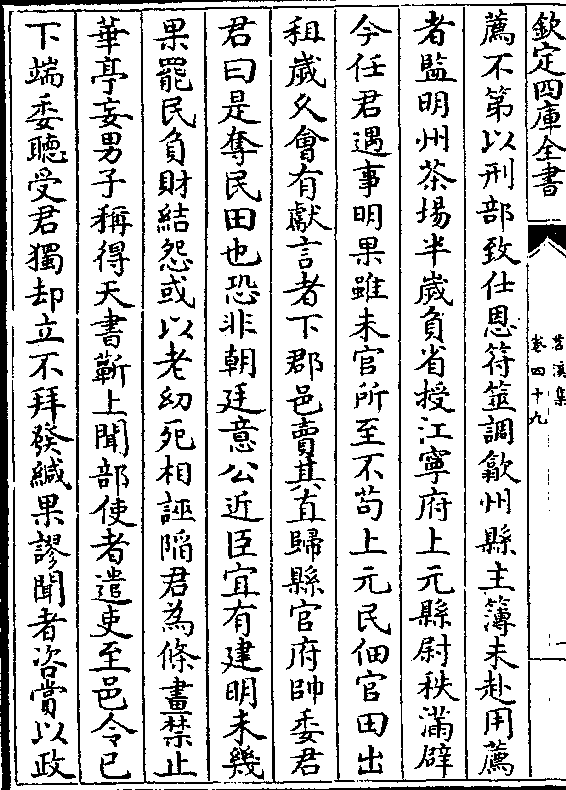 欽定四庫全書
苕溪集
卷四十九
薦不第以刑部致仕恩符筮調歙州縣主簿未赴用薦
者監明州茶場半歲負省授江寧府上元縣尉秩滿辟
今任君遇事明果雖末官所至不苟上元民佃官田出
租歲久會有獻言者下郡邑賣其直歸縣官府帥委君
君曰是奪民田也恐非朝廷意公近臣宜有建明未幾
果罷民負財結怨或以老幼死相誣陷君為條畫禁止
華亭妄男子稱得天書蘄上聞部使者遣吏至邑令已
下端委聽受君獨却立不拜發緘果謬聞者咨賞以政